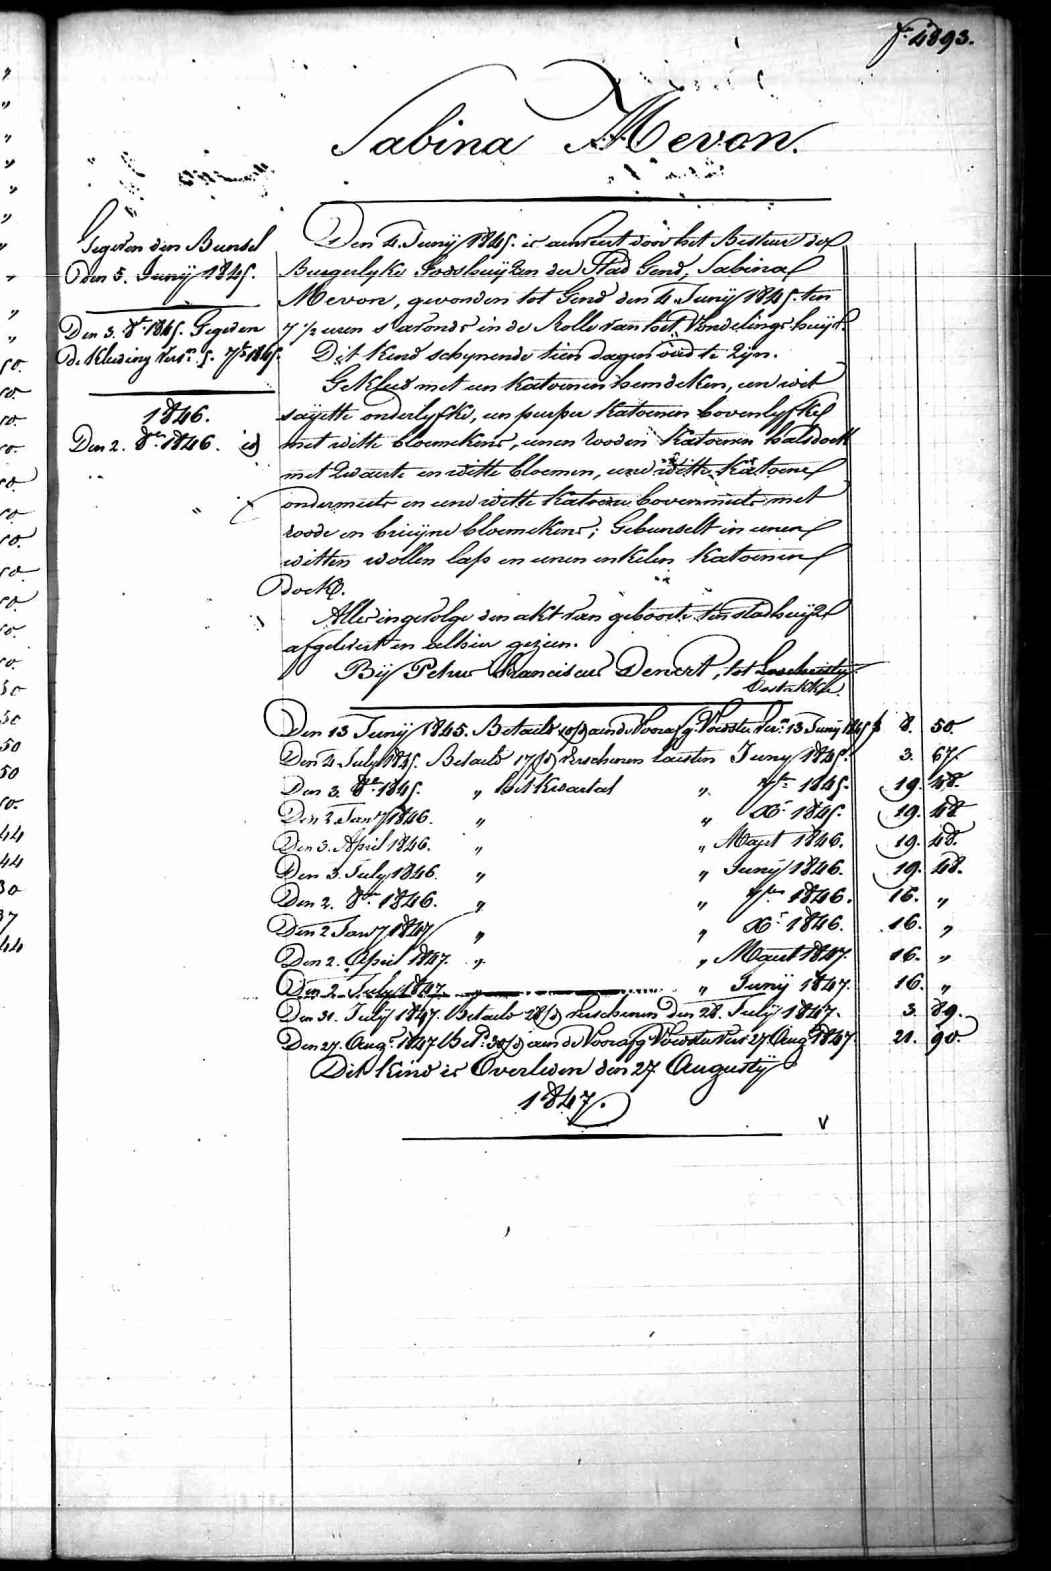 f.º 4893.
Sabina Mevon.
Gegeven den Bunsel
den 5. Junij 1845.
Den 3. 8.e 1845. Gegeven
de Kleding Vers.n 5. 7.b 1845.
1846.
Den 2. 8.er 1846. id
Den 4. Junij 1845. is aenveert door het Bestuer der
Burgerlyke Godshuijzen der Stad Gend, Sabina
Mevon, gevonden tot Gend den 4. Junij 1845. ten
7 1/2 uren s'avonds in de Rolle van het Vondelings huijs.
Dit Kind schynende tien dagen oud te zijn.
Gekleed met een Katoenen hemdeken, een wit
sayette onderlyfke, een purper Katoenen bovenlyfke
met witte bloemekens, eenen rooden Katoenen halsdoek
met zwarte en witte bloemen, eene witte Katoene
ondermuts en eene witte Katoene bovenmuts met
roode en bruijne bloemekens; Gebunselt in eenen
witten wollen lap en eenen enkelen Katoenen
doek.
Alles ingevolge den akt van geboorte ten stadhuijze
afgelevert en alhier gezien.
Bij Petrus Franciscus Denert, tot Loochristy
Oostakker.
Den 13 Junij 1845. Betaeld 10/d aen de Voorafg. Voedster Vers.n 13 Junij 1845 f 8. 50.
Den 4 July 1845. Betaeld 17/d Verschenen laesten Juny 1845. 3. 67.
Den 3. 8.e 1845. " het Kwartael " 7.b 1845. 19. 48.
Den 2 Jan.y 1846. " " X.r 1845. 19. 48.
Den 3. April 1846. " " Maert 1846. 19. 48.
Den 3. July 1846. " " Junij 1846. 19. 48.
Den 2. 8.er 1846. " " 7.ber 1846. 16. "
Den 2 Jan.y 1847 " " X.r 1846. 16. "
Den 2. April 1847. " " Maert 1847. 16. "
Den 2. July 1847. " " Junij 1847. 16. "
Den 31. Julij 1847. Betaeld 28/d Verschenen den 28. Julij 1847. 3. 89.
Den 27. Aug.s 1847 Bet.d 30/d aen de Voorafg Voedster Vers 27 Aug.s 1847. 21. 90.
Dit kind is Overleden den 27 Augusty
1847.
v